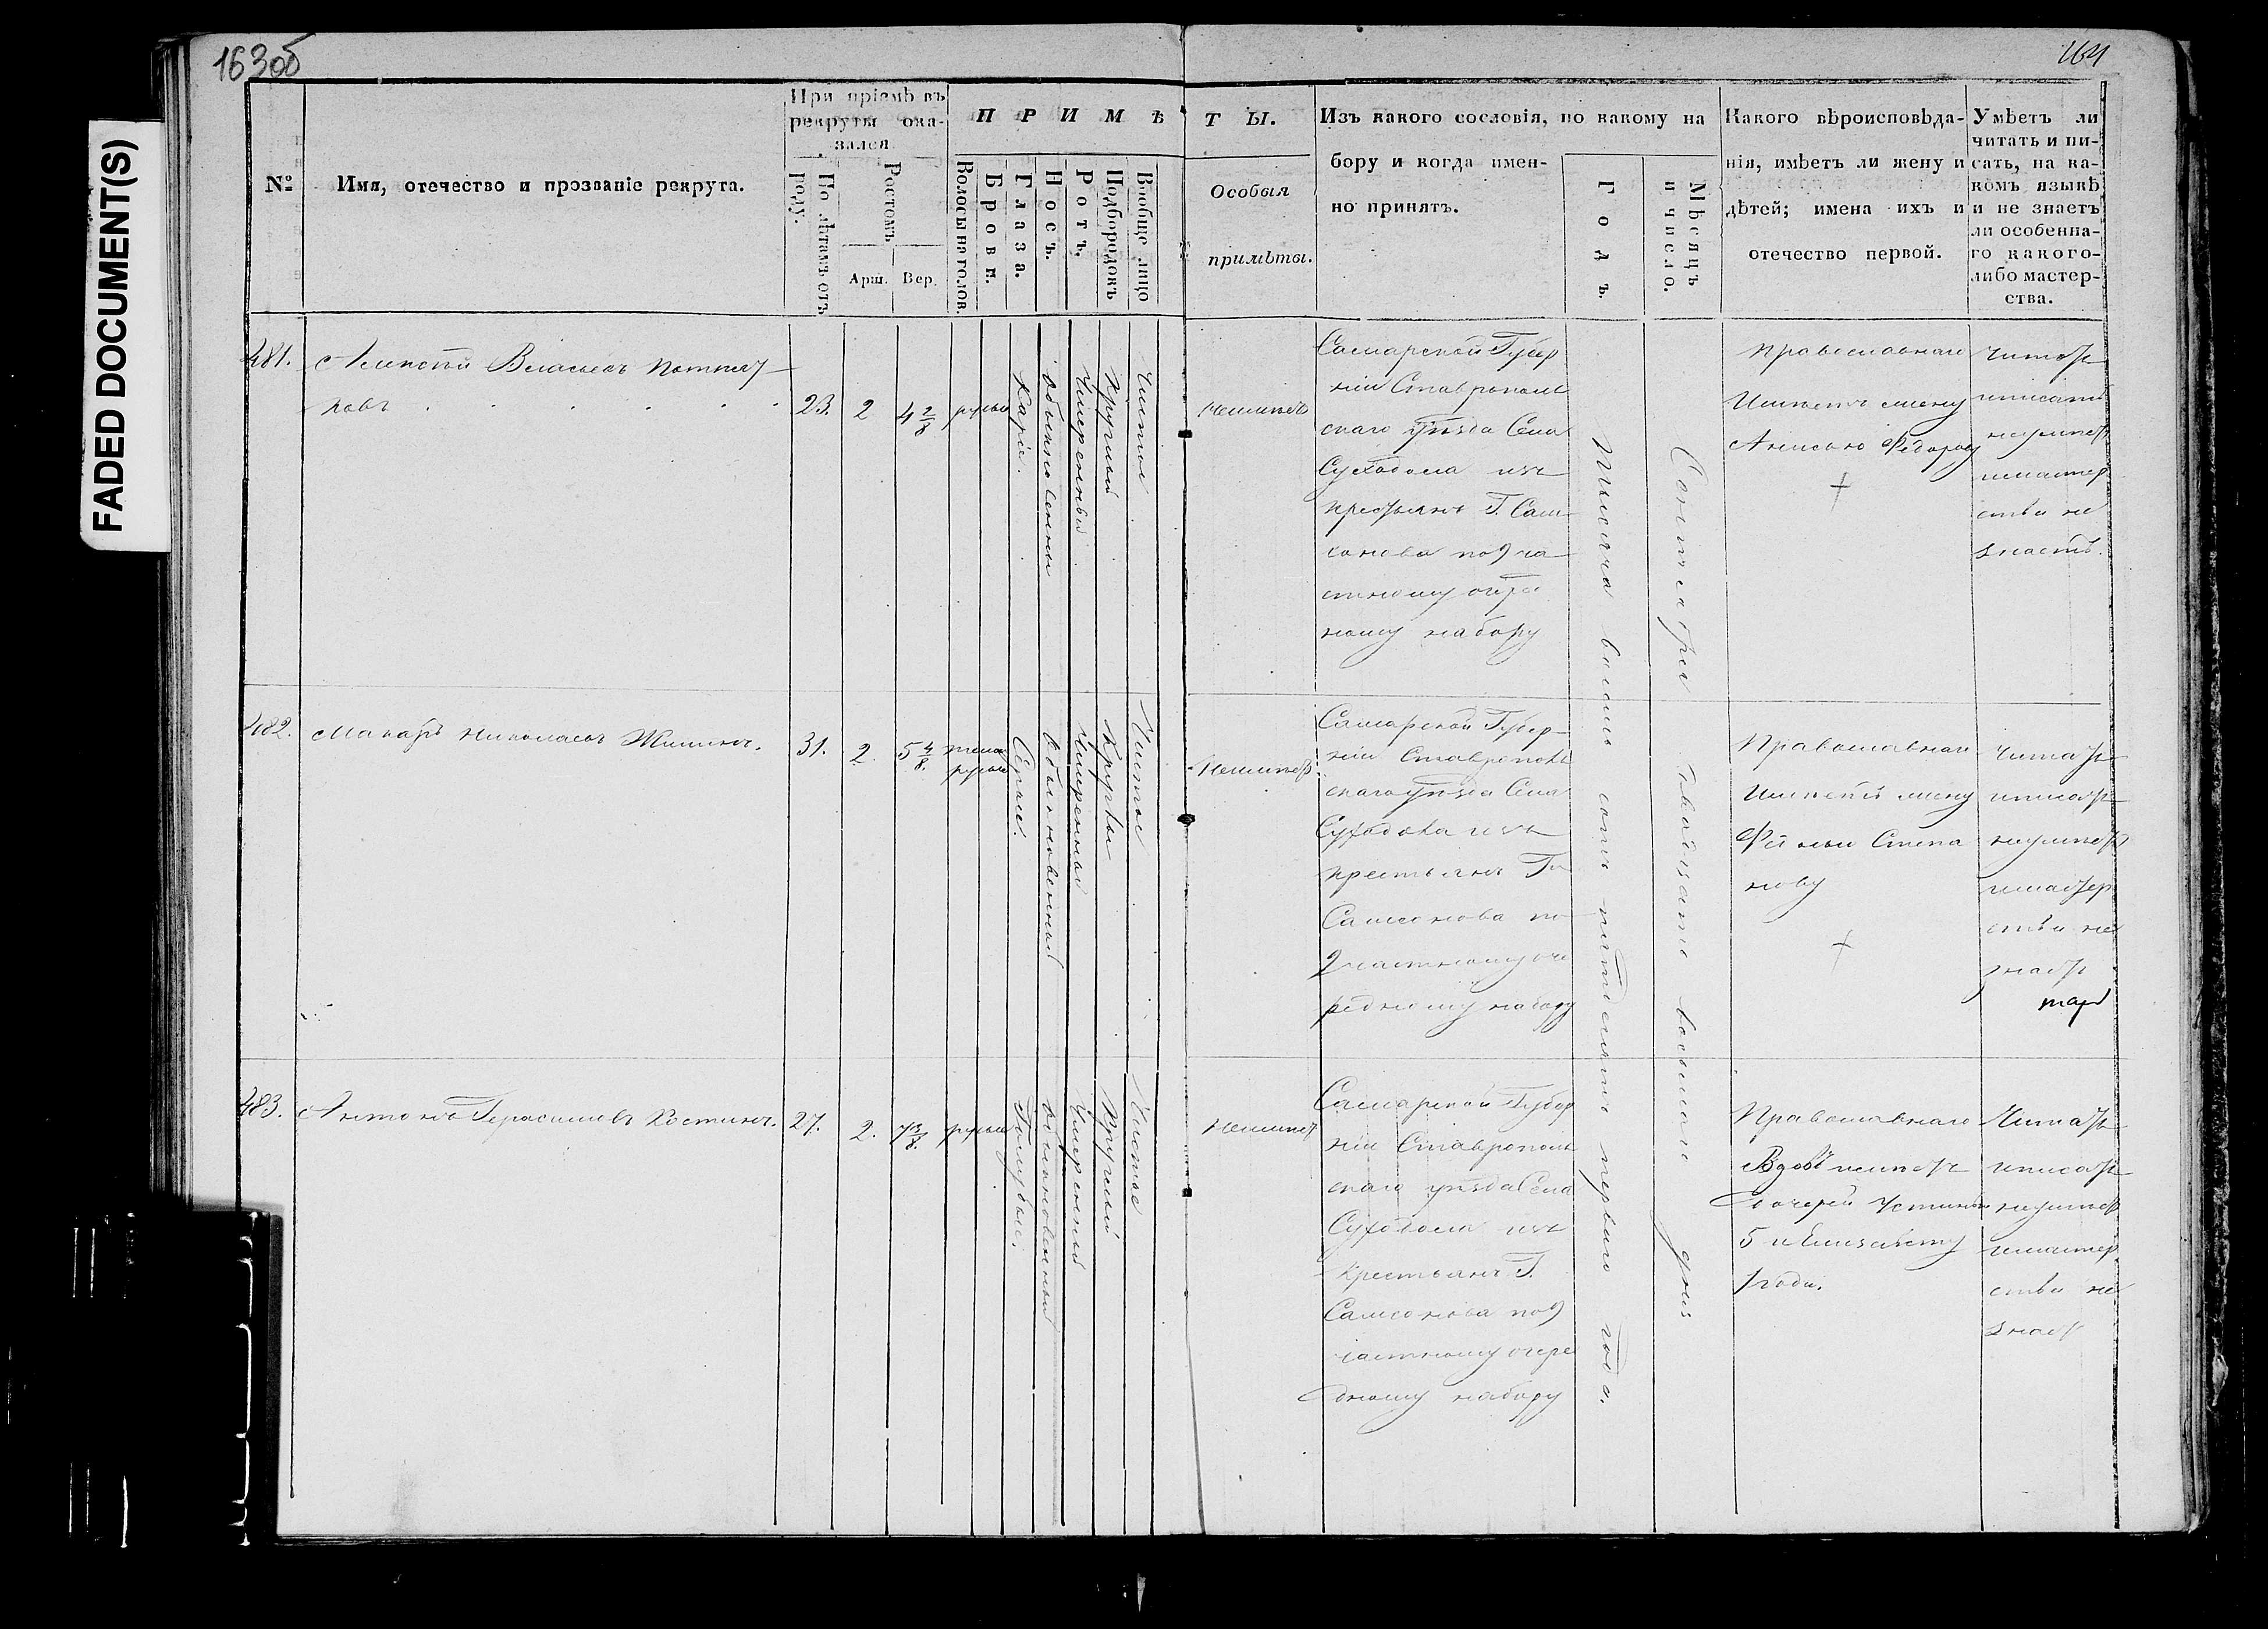 163об
164
FADED DOCUMENT(S)
№
Имя, отечество и прозваніе рекрута.
При пріемѣ въ
рекруты ока-
зался
По лѣтамъ отъ
роду.
Ростомъ
Арш. Вер.
ПРИМѢТЫ.
Волосы на голов.
Брови.
Глаза.
Носъ.
Ротъ.
Подбородокъ
Вообще лицо
Особыя
примѣты.
Изъ какого сословія, по какому на
бору и когда имен-
но принятъ.
Годъ.
Мѣсяцъ
и число.
Какого вѣроисповѣда-
нія, имѣетъ ли жену и
дѣтей; имена ихъ и
отечество первой.
Умѣетъ ли
читать и пи-
сать, на ка-
комъ языкѣ
и не знаетъ
ли особенна-
го какого-
либо мастер-
ства.
481.
Алексѣй Власьевъ
ковъ
23. 2 4 2/8 русые
Каріе.
обыкновенный
Умеренный
круглый
Чистое
неимѣетъ
Самарской Губер
ніи Ставрополь
скаго уѣзда Села
Суходола изъ
крестьянъ Г. Сам
сонова под ча
стному очере
ному набору
Тысяча восемь сотъ пятдесятъ перваго года.
Сентября двадцать восьмаго дня
Православнаго
Имѣетъ жену
Анисью Федорову
читать
иписать
неумѣетъ
имастер
ства не
знаетъ.
482.
Макаръ Николаевъ Жилинъ.
31. 2. 5 4/8. темно
русые
Серые.
Обыкновенный
Умеренный
Круглый
Чистое
Неимѣетъ
Самарской Губер-
ніи Ставрополь
скаго уѣзда Села
Суходола изъ
крестьянъ Г
Самсонова по
д частному оче
редному набору
Православнаго
Имѣетъ жену
Степа
нову
читать
иписать
неумѣетъ
имастер
ства не
знаетъ
483.
Антонъ Герасимовъ Костинъ.
27. 2. 7 3/8. русые
Голубые.
обыкновенный
Умеренный
круглый
Чистое
Неимѣетъ
Самарской Губер
ніи Ставрополь
скаго уѣзда Села
Суходола изъ
Крестьянъ Г.
Самсонова под
частному очере
дному набору
Православнаго
Вдовъ имѣетъ
дочерей Устинью
5 и Елизавету
1 года.
Читать
иписать
неумѣетъ
имастер
ства не
знаетъ